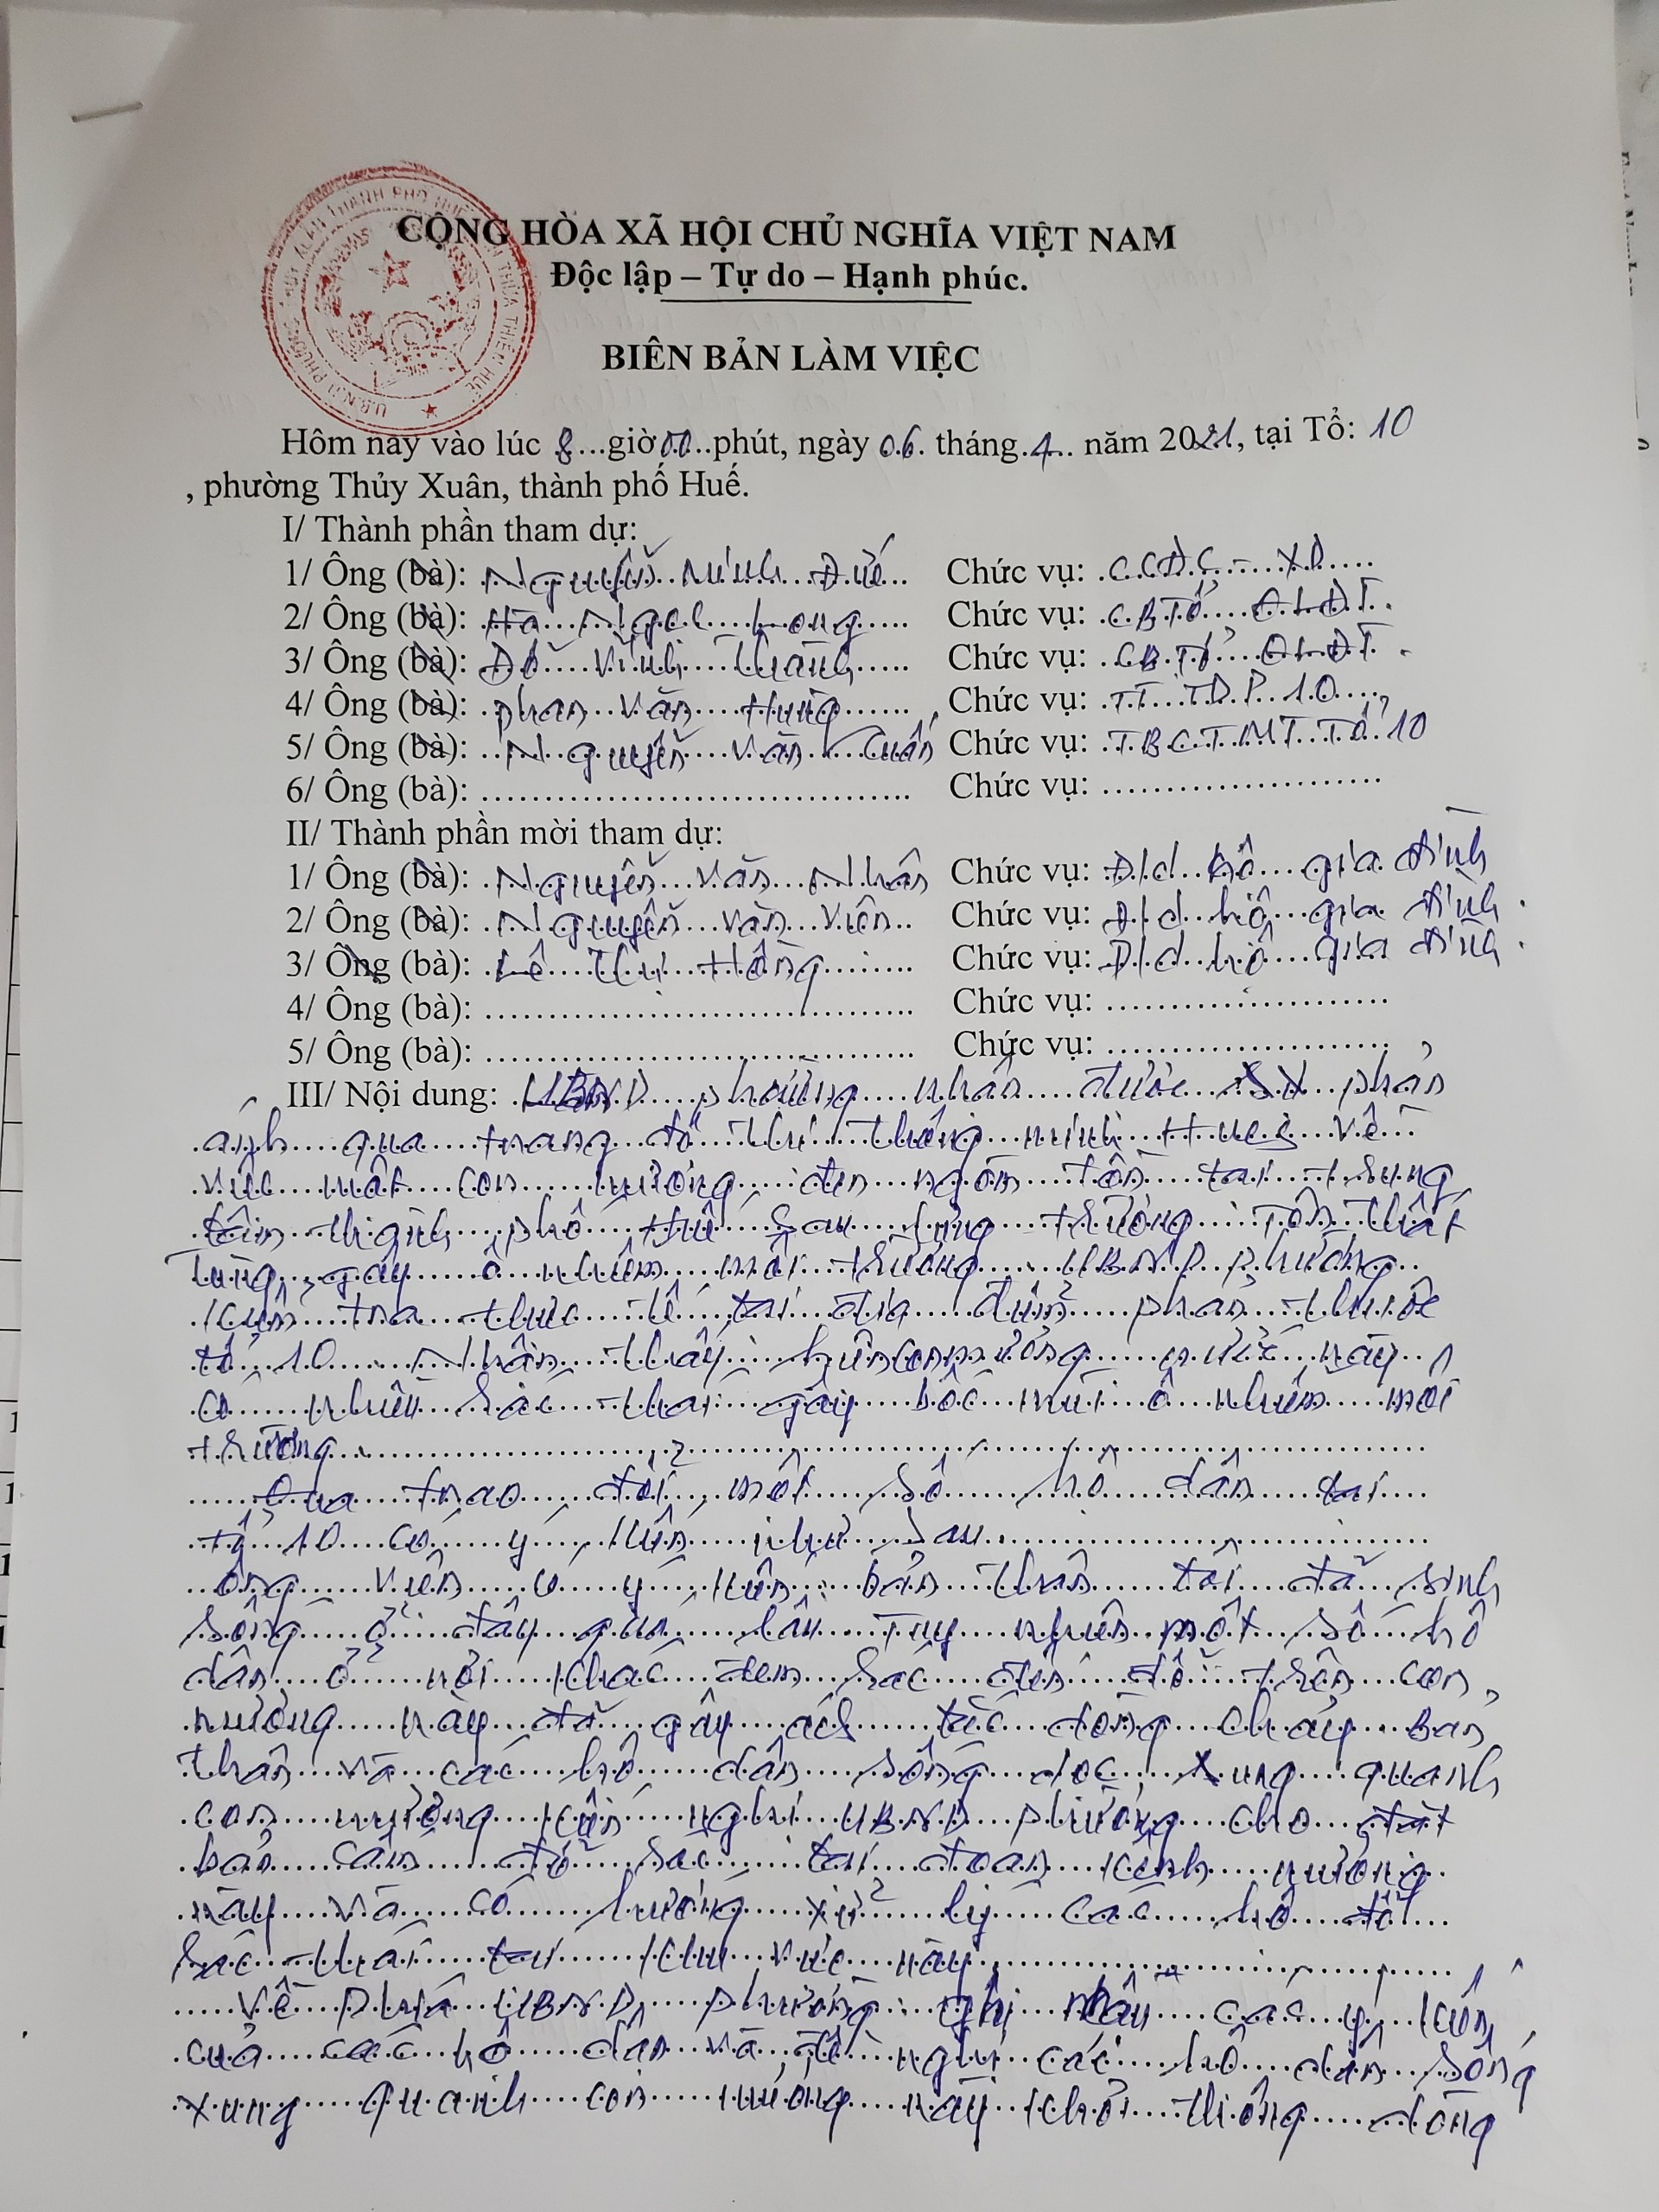 CỘNG HÒA XÃ HỘI CHỦ NGHĨA VIỆT NAM
Độc lập – Tự do – Hạnh phúc.
BIÊN BẢN LÀM VIỆC
Hôm nay vào lúc 8 giờ 00 phút, ngày 06 tháng 4 năm 2021, tại Tổ: 10
, phường Thủy Xuân, thành phố Huế.
I/ Thành phần tham dự:
1/ Ông (bà): Nguyễn Minh Đức Chức vụ: CCĐC - XD
2/ Ông (bà): Hà Ngọc Long Chức vụ: CB Tổ QLĐT
3/ Ông (bà): Đỗ Vĩnh Thành Chức vụ: CB Tổ QLĐT
4/ Ông (bà): Phan Văn Hùng Chức vụ: TT TDP 10
5/ Ông (bà): Nguyễn Văn Chức vụ: TBCTMT Tổ 10
6/ Ông (bà): Chức vụ:
II/ Thành phần mời tham dự:
1/ Ông (bà): Nguyễn Văn Nhân Chức vụ: Đ/d hộ gia đình
2/ Ông (bà): Nguyễn Văn Viên Chức vụ: Đ/d hộ gia đình
3/ Ông (bà): Lê Thị Hồng Chức vụ: Đ/d hộ gia đình
4/ Ông (bà): Chức vụ:
5/ Ông (bà): Chức vụ:
III/ Nội dung: UBND phường nhận được phản
ánh qua trang đô thị thông minh HueS về
việc một con mương đen ngòm tồn tại trung
tâm thành phố Huế sau lưng trường Tôn Thất
Tùng, gây ô nhiễm môi trường. UBND phường
kiểm tra thực tế tại địa điểm phản thuộc
tổ 10. Nhận thấy hiện con mương nước này
có nhiều rác thải gây bốc mùi ô nhiễm môi
trường.
Qua trao đổi một số hộ dân tại
tổ 10 có ý kiến như sau.
Ông Viên có ý kiến: bản thân tôi đã sinh
sống ở đây quá lâu. Tuy nhiên một số hộ
dân ở nơi khác đem rác đến đổ trên con
mương này đã gây ách tắc dòng chảy. Bản
thân và các hộ dân sống dọc xung quanh
con mương kiến nghị UBND phường cho đặt
bản cấm đổ rác tại đoạn kênh mương
này và có hướng xử lý các hộ đổ
rác thải tại khu vực này.
Về phía UBND phường ghi nhận các ý kiến
của các hộ dân và đề nghị các hộ dân sống
xung quanh con mương này khơi thông dòng